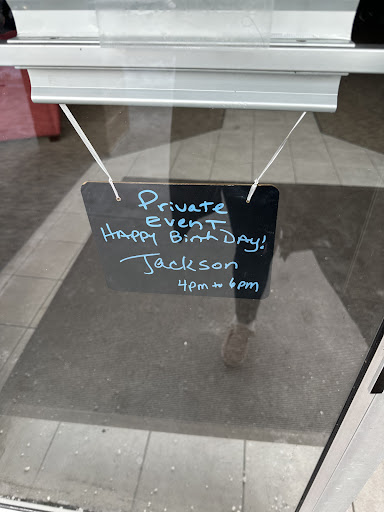 Private
EVENT
HAPPY BirthDAY!
Jackson
4pm to 6pm